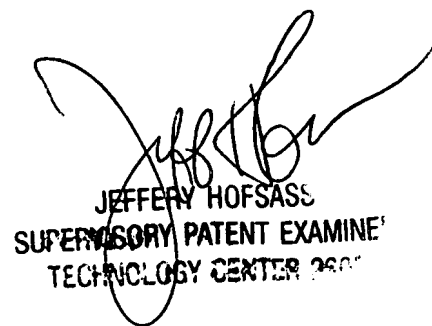 Jeff H
JEFFERY HOFSASS
SUPERVISORY PATENT EXAMINE
TECHNOLOGY CENTER